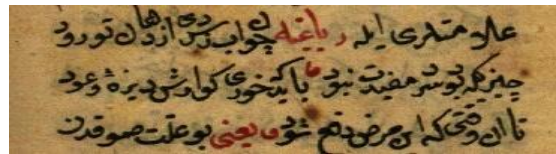 علامتلری ایله رباعیه چو آب زدی از دهان تو رود
چیزیکه بود سرد مفیدت نبود باید که خوری کوارش زیره و عود
تا آن وقتی که این مرض دفع شود یعنی بو علت صوقدن